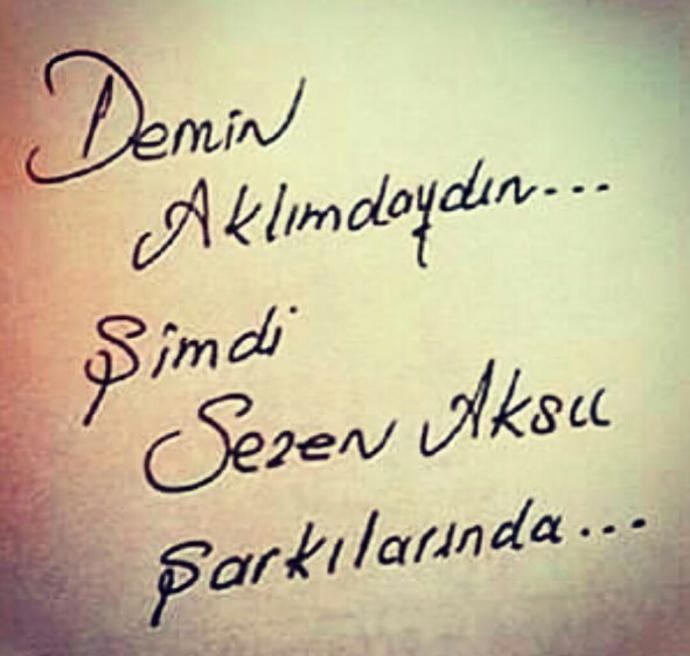 Demin
Aklımdaydın...
Şimdi
Sezen Aksu
Şarkılarında...